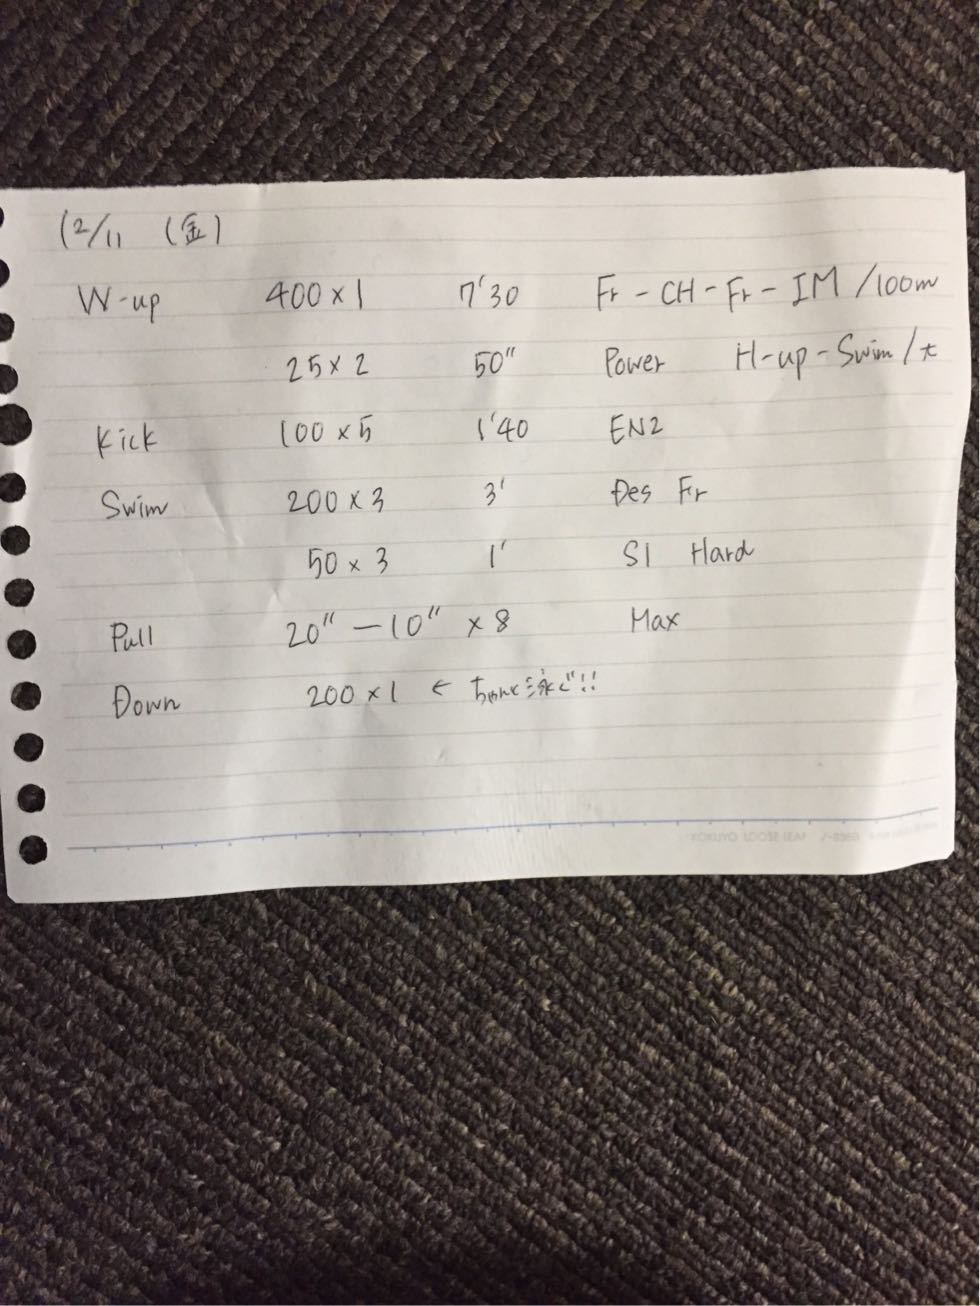 12/11 (金)
W-up 400×1 7'30 Fr-CH-Fr-IM/100m
25×2 50" Power H-up-Swim/t
Kick 100×5 1'40 EN2
Swim 200×3 3' Des Fr
50×3 1' S1 Hard
Pull 20"-10" ×8 Max
Down 200×1 ← ちゃんと泳ぐ!!
KOKUYO LOOSE-LEAF